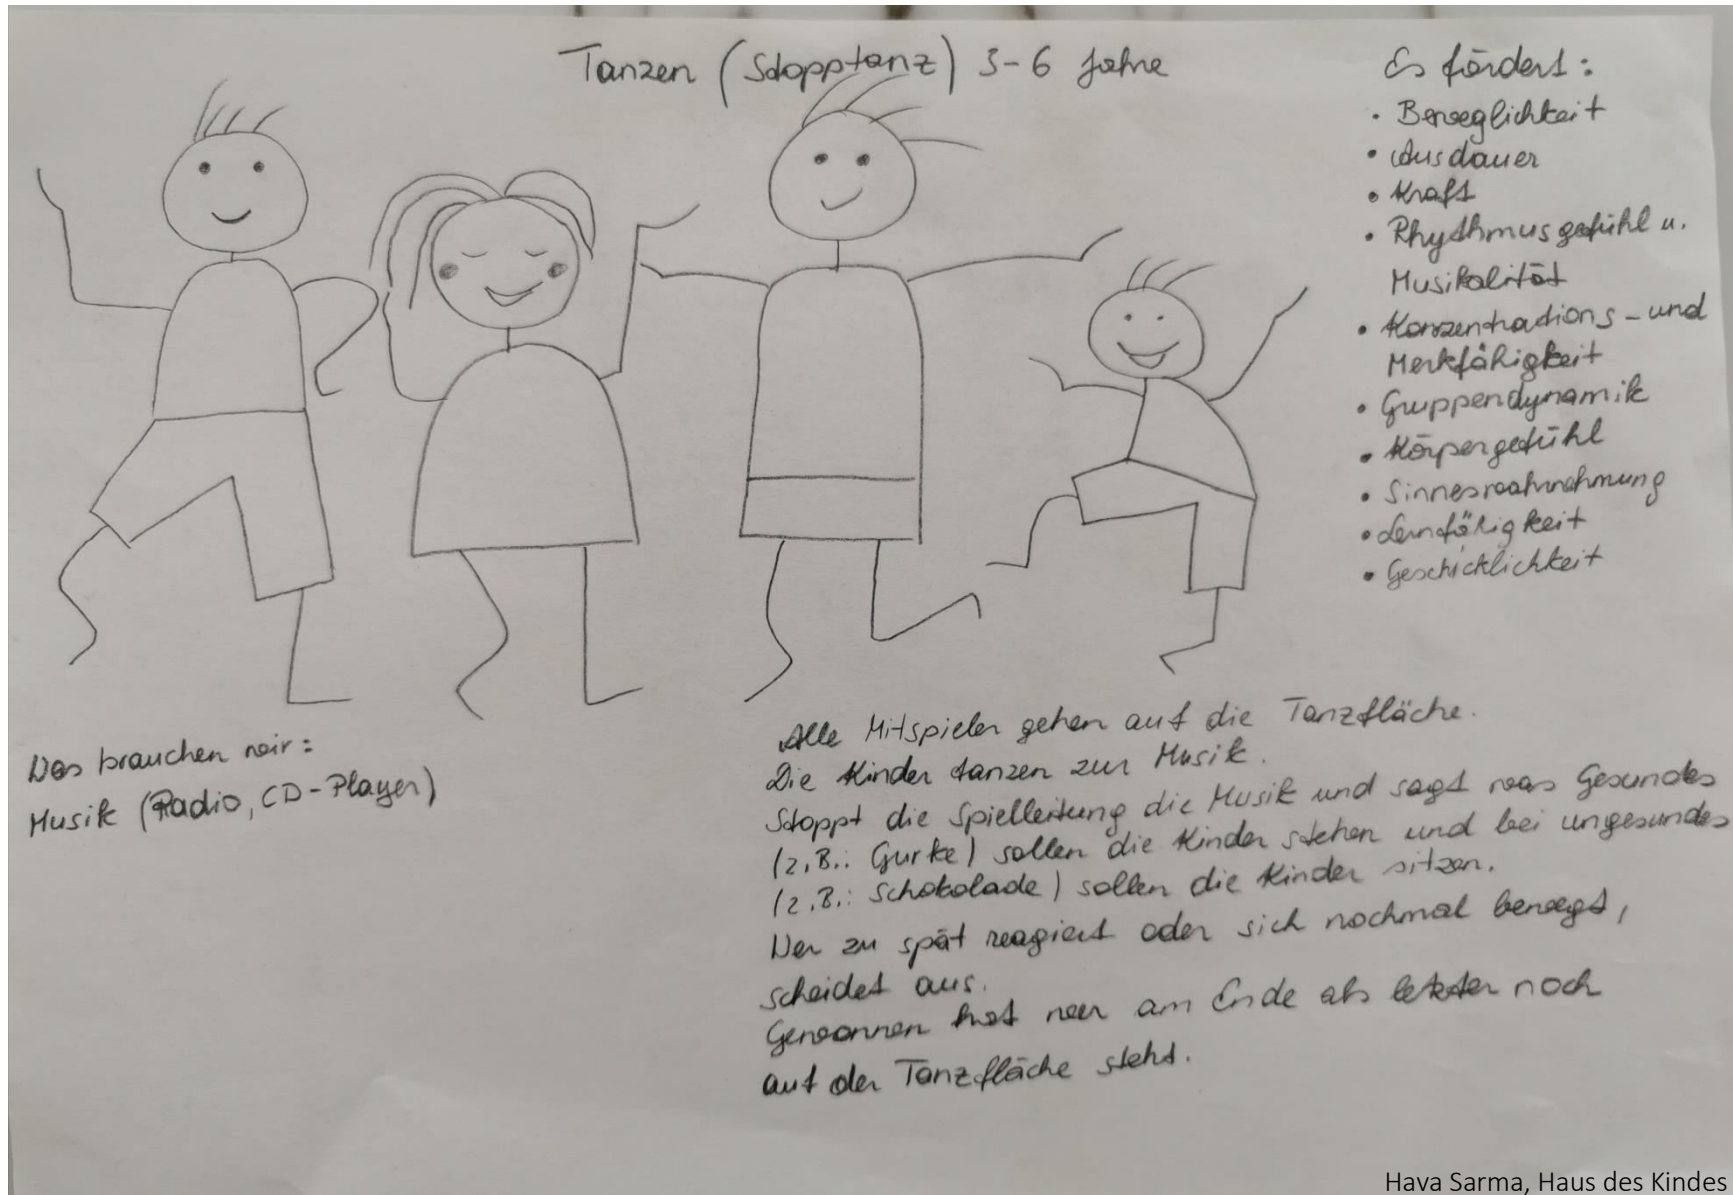 Tanzen (Stopptanz) 3-6 Jahre
Es fördert:
• Beweglichkeit
• Ausdauer
• Kraft
• Rhythmusgefühl u.
Musikalität
• Konzentrations- und
Merkfähigkeit
• Gruppendynamik
• Körpergefühl
• Sinneswahrnehmung
• Lernfähigkeit
• Geschicklichkeit
Das brauchen wir:
Musik (Radio, CD-Player)
Alle Mitspieler gehen auf die Tanzfläche.
Die Kinder tanzen zur Musik.
Stoppt die Spielleitung die Musik und sagt was Gesundes
(z.B.: Gurke) sollen die Kinder stehen und bei ungesundes
(z.B.: Schokolade) sollen die Kinder sitzen.
Wer zu spät reagiert oder sich nochmal bewegt,
scheidet aus.
Gewonnen hat wer am Ende als letzter noch
auf der Tanzfläche steht.
Hava Sarma, Haus des Kindes